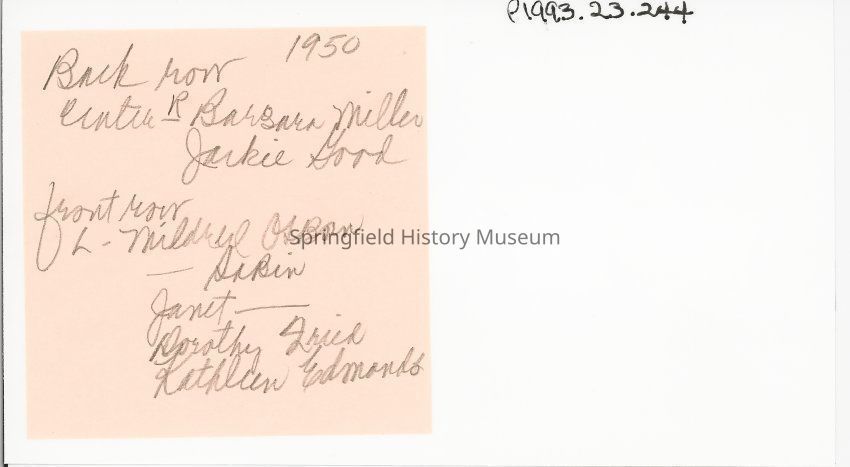 P1993.23.244
1950
Back row
Center R Barbara Miller
Jackie Good
front row
L - Mildred
Springfield History Museum
— Sabin
Janet —
Dorothy Fried
Kathleen Edmonds